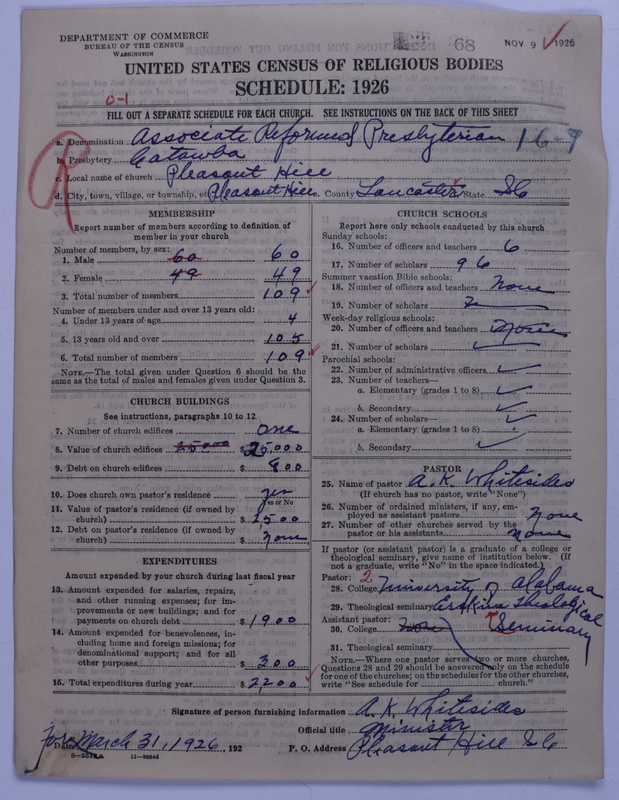 DEPARTMENT OF COMMERCE
BUREAU OF THE CENSUS
WASHINGTON
68
NOV 9 1926
UNITED STATES CENSUS OF RELIGIOUS BODIES
SCHEDULE: 1926
0-1
FILL OUT A SEPARATE SCHEDULE FOR EACH CHURCH. SEE INSTRUCTIONS ON THE BACK OF THIS SHEET
a. Denomination Associate Reformed Presbyterian 16-9
b. Presbytery Catawba
c. Local name of church Pleasant Hill
d. City, town, village, or township, etc. Pleasant Hill e. County Lancaster State SC
MEMBERSHIP
Report number of members according to definition of
member in your church
Number of members, by sex:
1. Male 60 60
2. Female 49 49
3. Total number of members 109
Number of members under and over 13 years old:
4. Under 13 years of age 4
5. 13 years old and over 105
6. Total number of members 109
NOTE.—The total given under Question 6 should be
the same as the total of males and females given under Question 3.
CHURCH BUILDINGS
See instructions, paragraphs 10 to 12
7. Number of church edifices One
8. Value of church edifices 25000 $ 25,000
9. Debt on church edifices $ 800
10. Does church own pastor's residence yes
Yes or No
11. Value of pastor's residence (if owned by
church) $ 2500
12. Debt on pastor's residence (if owned by
church) $ none
EXPENDITURES
Amount expended by your church during last fiscal year
13. Amount expended for salaries, repairs,
and other running expenses; for im-
provements or new buildings; and for
payments on church debt $ 1900
14. Amount expended for benevolences, in-
cluding home and foreign missions; for
denominational support; and for all
other purposes $ 300
15. Total expenditures during year $ 2200
CHURCH SCHOOLS
Report here only schools conducted by this church
Sunday schools:
16. Number of officers and teachers 6
17. Number of scholars 96
Summer vacation Bible schools:
18. Number of officers and teachers none
19. Number of scholars
Week-day religious schools:
20. Number of officers and teachers None
21. Number of scholars
Parochial schools:
22. Number of administrative officers
23. Number of teachers—
a. Elementary (grades 1 to 8)
b. Secondary
24. Number of scholars—
a. Elementary (grades 1 to 8)
b. Secondary
PASTOR
25. Name of pastor A. K. Whitesides
(If church has no pastor, write "None")
26. Number of ordained ministers, if any, em-
ployed as assistant pastors none
27. Number of other churches served by the
pastor or his assistants none
If pastor (or assistant pastor) is a graduate of a college or
theological seminary, give name of institution below. (If
not a graduate, write "No" in the space indicated.)
Pastor: 2
28. College University of Alabama
29. Theological seminary Erskine Theological
Assistant pastor: Seminary
30. College None
31. Theological seminary
NOTE.—Where one pastor serves two or more churches,
Questions 28 and 29 should be answered only on the schedule
for one of the churches; on the schedules for the other churches,
write "See schedule for church."
Signature of person furnishing information A. K. Whitesides
Official title Minister
Date March 31, 1926, 192 P. O. Address Pleasant Hill SC